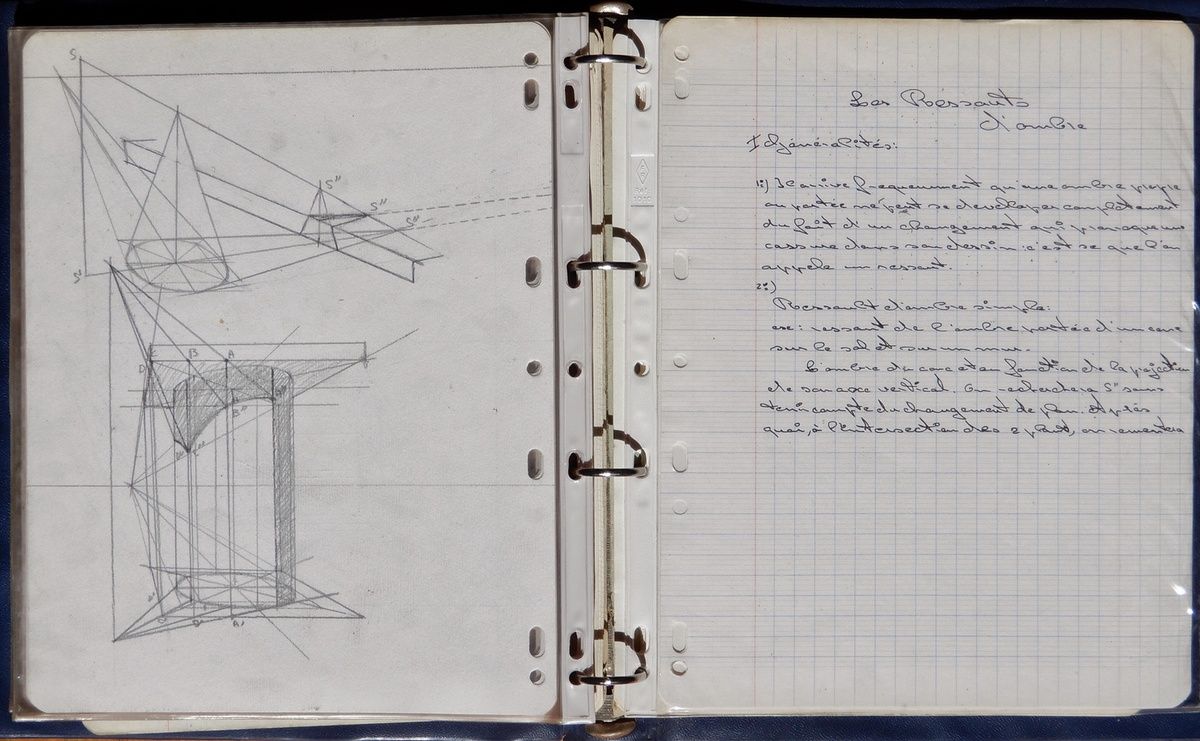 S
S''
S''
S''
S'
E
B
A
D
B''
A'
Les Ressauts
d'ombre
I Généralités:
1:) Il arrive fréquemment qu'une ombre propre
ou portée ne peut se developer completement
du fait d'un changement qui provoque une
cassure dans son dessin: c'est se que l'on
appele un ressaut.
2:)
Ressault d'ombre simple:
ex: ressaut de l'ombre portée d'un cone
sur le sol et sur un mur.
L'ombre du cone et en fonction de la projection
de son axe vertical. On recherchera S'' sans
tenir compte du changement de plan. Après
quoi, à l'intersection des 2 plans, on remontera